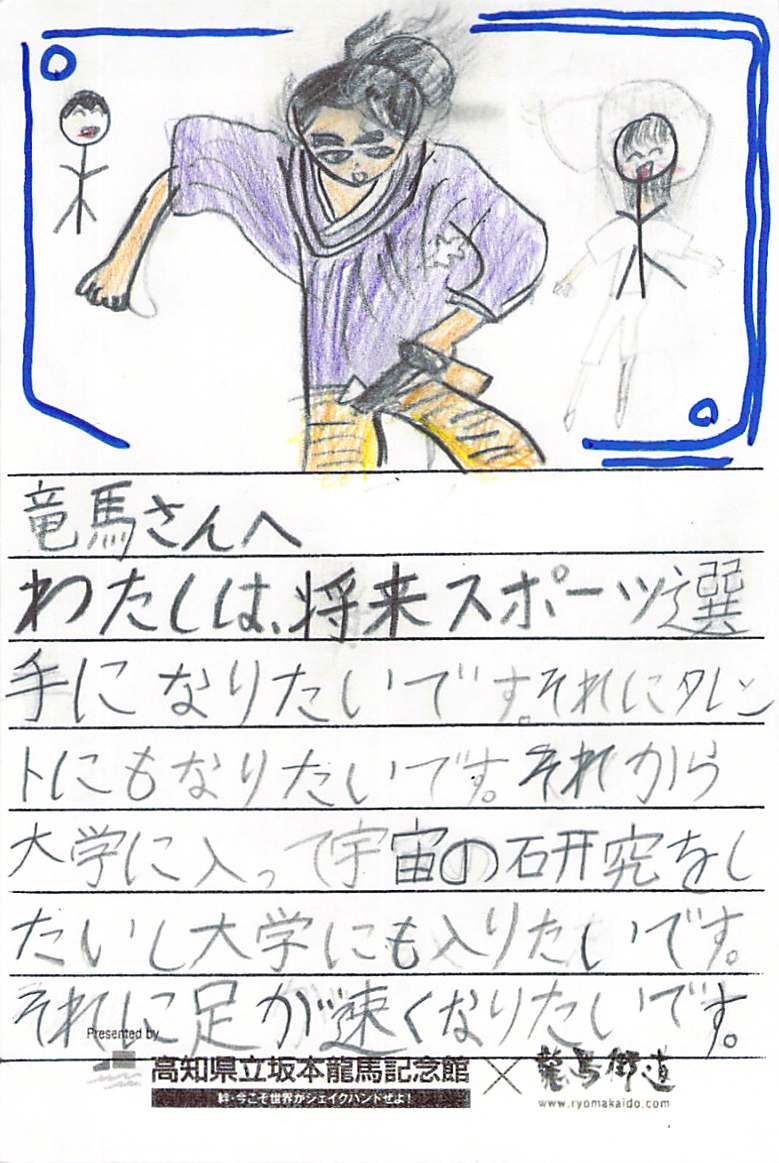 竜馬さんへ
わたしは、将来スポーツ選
手になりたいです。それにタレン
トにもなりたいです。それから
大学に入って宇宙の研究をし
たいし大学にも入りたいです。
それに足が速くなりたいです。
Presented by
高知県立坂本龍馬記念館×龍馬街道
絆・今こそ世界がシェイクハンドぜよ！
www.ryomakaido.com